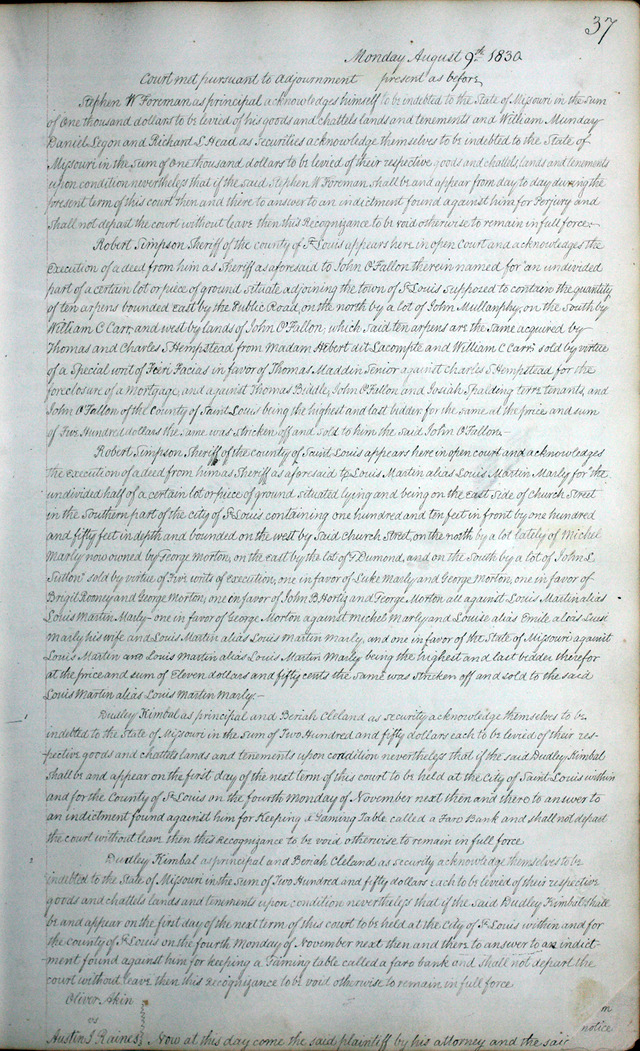 37
Monday August 9th 1830
Court met pursuant to adjournment present as before
Stephen W Foreman as principal acknowledges himself to be indebted to the State of Missouri in the Sum
of One thousand dollars to be levied of his goods and chattels lands and tenements and William Munday
Daniel Legon and Richard S Head as Securities acknowledge themselves to be indebted to the State of
Missouri in the Sum of One thousand dollars to be levied of their respective goods and chattels, lands and tenements
upon condition nevertheless that if the said Stephen W Foreman shall be and appear from day to day during the
present term of this court then and there to answer to an indictment found against him for Perjury and
shall not depart the court without leave then this Recognizance to be void otherwise to remain in full force-
Robert Simpson Sheriff of the county of St Louis appears here in open Court and acknowledges the
Execution of a deed from him as Sheriff as aforesaid to John O'Fallon therein named for "an undivided
part of a certain lot or piece of ground situate adjoining the town of St Louis supposed to contain the quantity
of ten arpens bounded East by the Public Road, on the north by a lot of John Mullanphy, on the South by
William C Carr and west by lands of John O'Fallon, which said ten arpens are the same acquired by
Thomas and Charles S Hempstead from Madam Hebert dit Lacompte and William C Carr" sold by virtue
of a Special writ of Fieri Facias in favor of Thomas Maddin Senior against Charles S Hempstead for the
foreclosure of a Mortgage, and against Thomas Biddle, John O'Fallon and Josiah Spalding terre tenants, and
John O'Fallon of the County of Saint Louis being the highest and last bidder for the same at the price and sum
of Five Hundred dollars the same was stricken off and sold to him the said John O'Fallon.-
Robert Simpson Sheriff of the county of Saint Louis appears here in open court and acknowledges
the execution of a deed from him as Sheriff as aforesaid to Louis Martin alias Louis Martin Marly for "the
undivided half of a certain lot or piece of ground situated lying and being on the East side of Church Street
in the Southern part of the city of St Louis containing one hundred and ten feet in front by one hundred
and fifty feet in depth and bounded on the west by said Church Street, on the north by a lot lately of Michel
Marly now owned by George Morton, on the east by the lot of Dumond, and on the South by a lot of John L
Sutton" sold by virtue of Five writs of execution, one in favor of Luke Marly and George Morton, one in favor of
Brigit Rooney and George Morton, one in favor of John B Hortiz and George Morton all against Louis Martin alias
Louis Martin Marly - one in favor of George Morton against Michel Marly and Louise alias Emile alias Luse
Marly his wife and Louis Martin alias Louis Martin Marly, and one in favor of the State of Missouri against
Louis Martin and Louis Martin alias Louis Martin Marly being the highest and last bidder therefor
at the price and sum of Eleven dollars and fifty cents the same was stricken off and sold to the said
Louis Martin alias Louis Martin Marly.-
Dudley Kimbal as principal and Beriah Cleland as security acknowledge themselves to be
indebted to the State of Missouri in the Sum of Two Hundred and fifty dollars each to be levied of their res-
pective goods and chattels lands and tenements upon condition nevertheless that if the said Dudley Kimbal
shall be and appear on the first day of the next term of this court to be held at the City of Saint Louis within
and for the County of St Louis on the fourth Monday of November next then and there to answer to
an indictment found against him for Keeping a Gaming Table called a Faro Bank and shall not depart
the court without leave then this Recognizance to be void otherwise to remain in full force
Dudley Kimbal as principal and Beriah Cleland as security acknowledge themselves to be
indebted to the State of Missouri in the Sum of Two Hundred and fifty dollars each to be levied of their respective
goods and chattels lands and tenements upon condition nevertheless that if the said Dudley Kimbal shall
be and appear on the first day of the next term of this court to be held at the City of St Louis within and for
the County of St Louis on the fourth Monday of November next then and there to answer to an indict-
ment found against him for keeping a Gaming table called a faro bank and shall not depart the
court without leave then this recognizance to be void otherwise to remain in full force
Oliver Akin
vs
Austin J Raines
Now at this day come the said plaintiff by his attorney and the said
notice